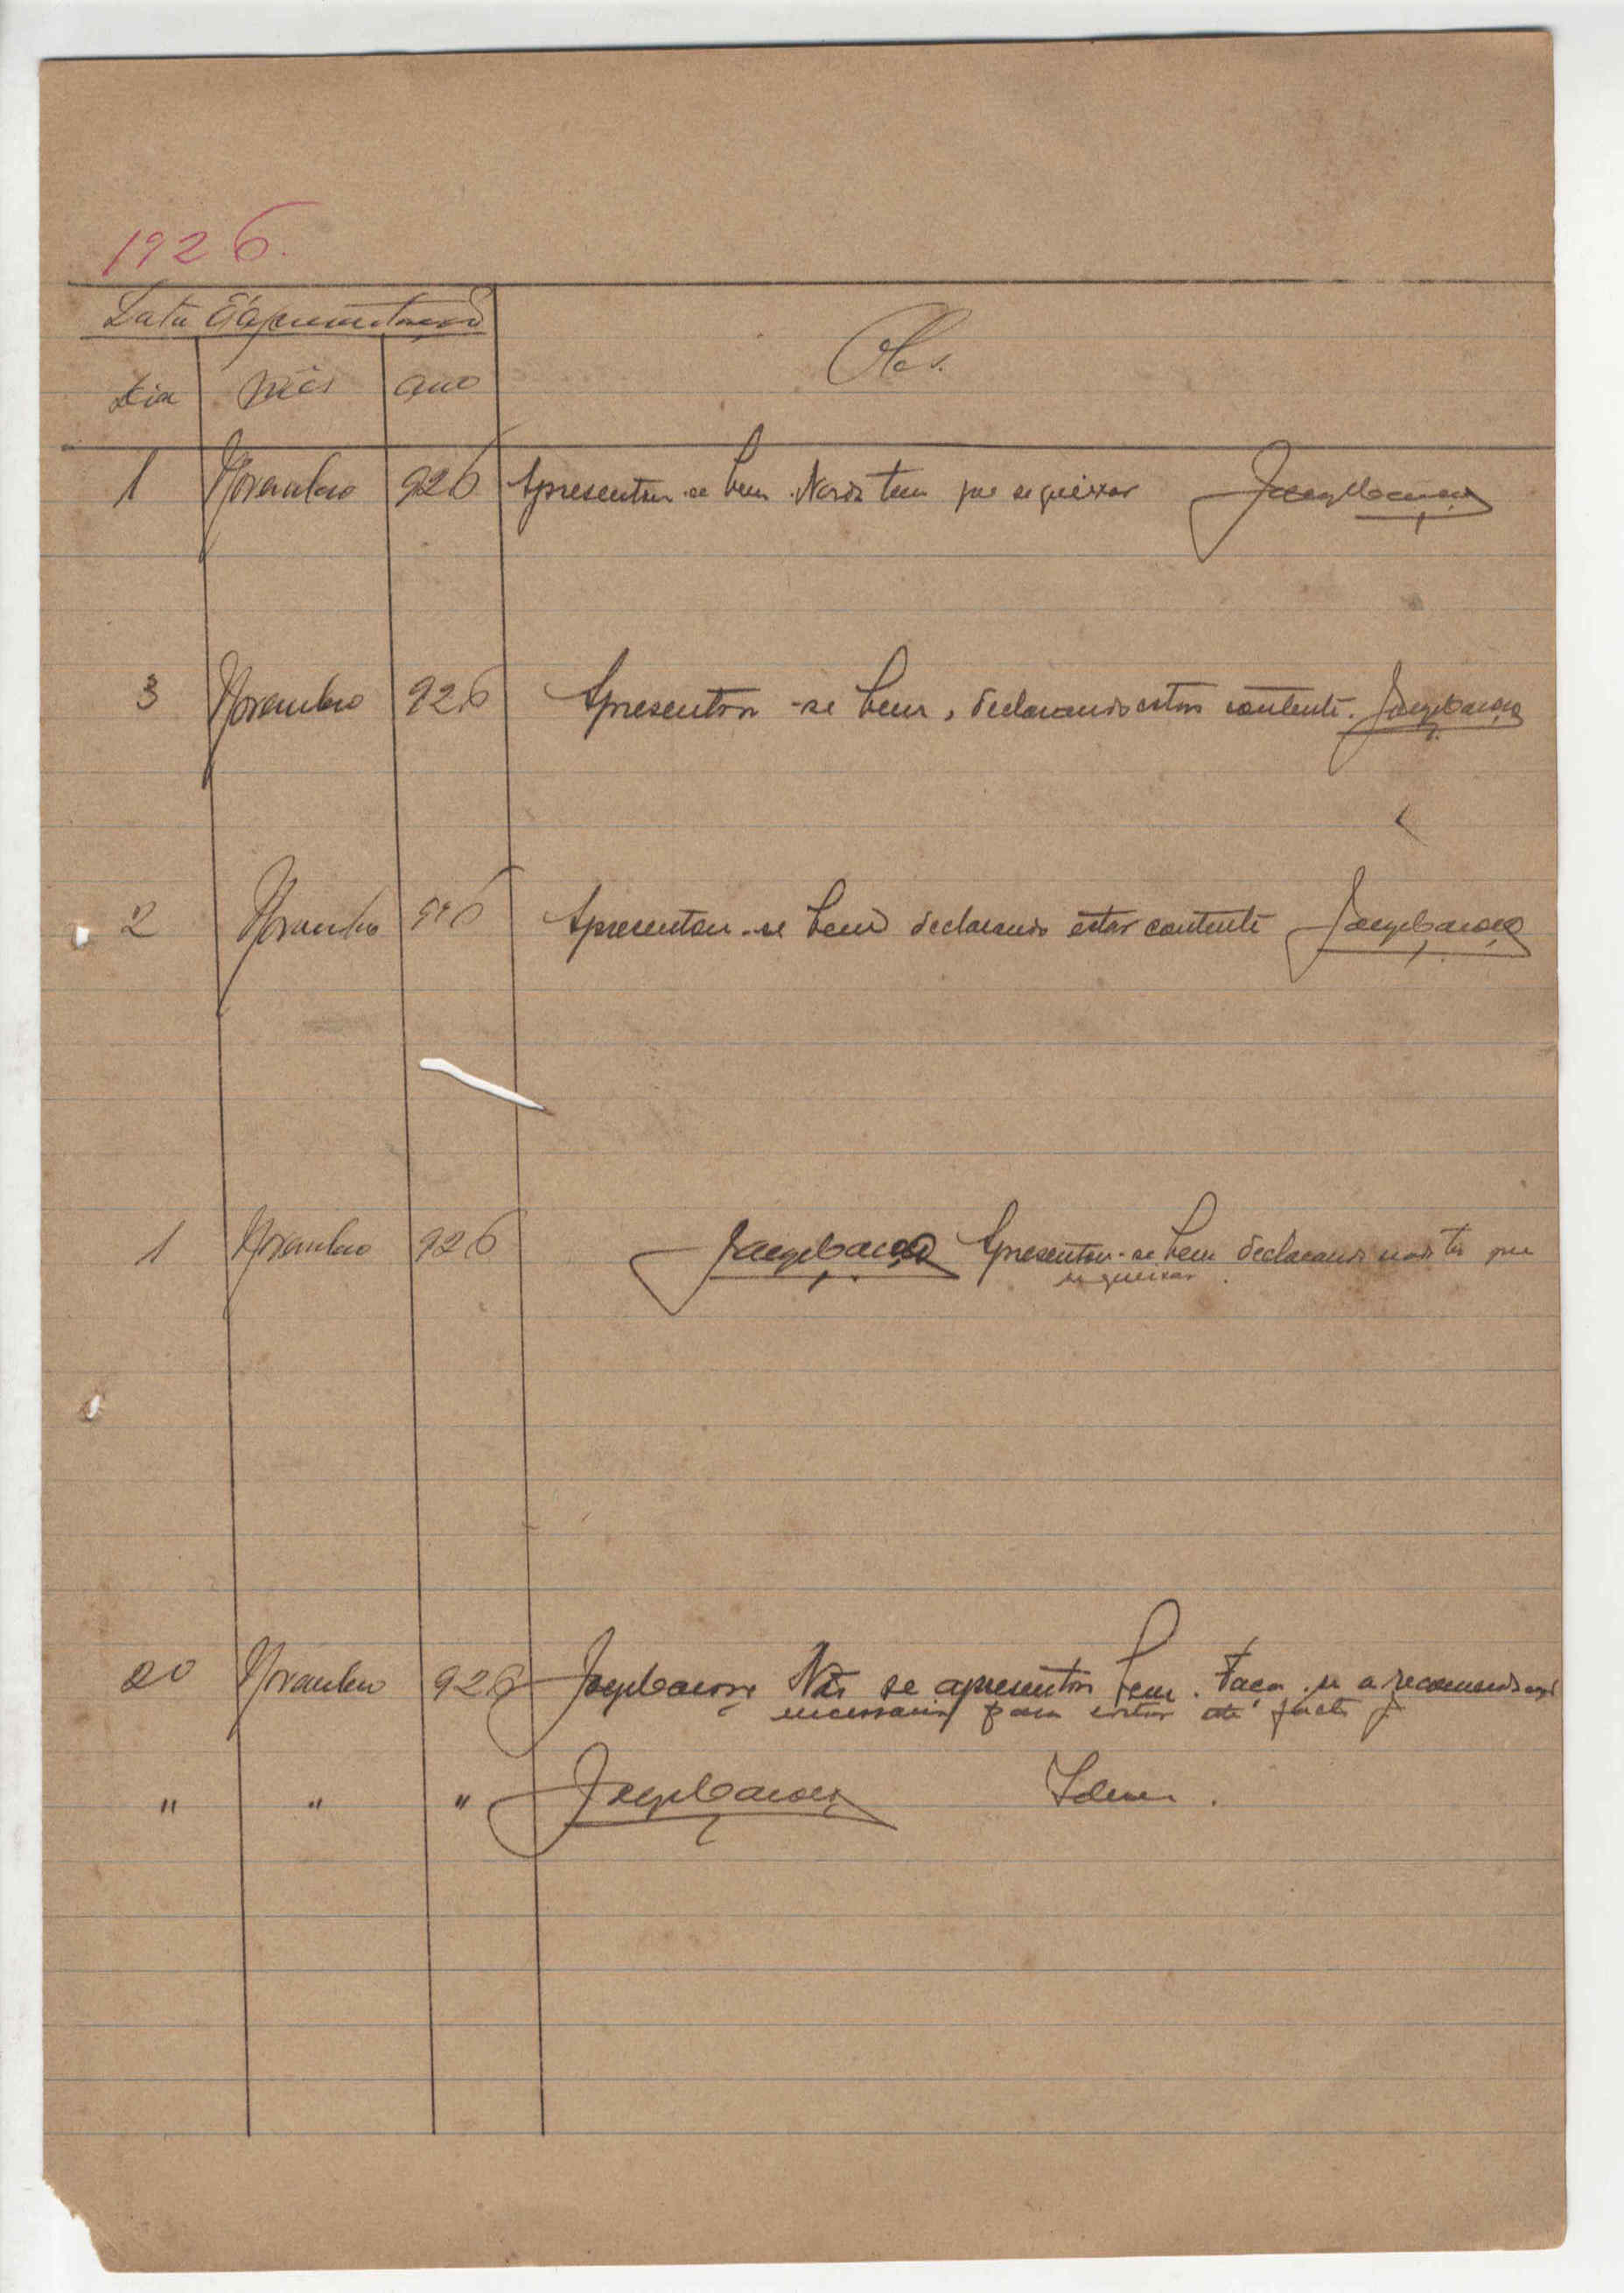 1926.
Data d'apresentação
Obs.
Dia mês ano
1 Novembro 926 Apresentou-se bem. Nada tem que se queixar
3 Novembro 926 Apresentou-se bem, declarando estar contente.
2 Novembro 926 Apresentou-se bem declarando estar contente
1 Novembro 926 Apresentou-se bem declarando não ter que
se queixar.
20 Novembro 926 Não se apresentou bem. Faça-se a recomendação
necessaria para
" " " Idem.